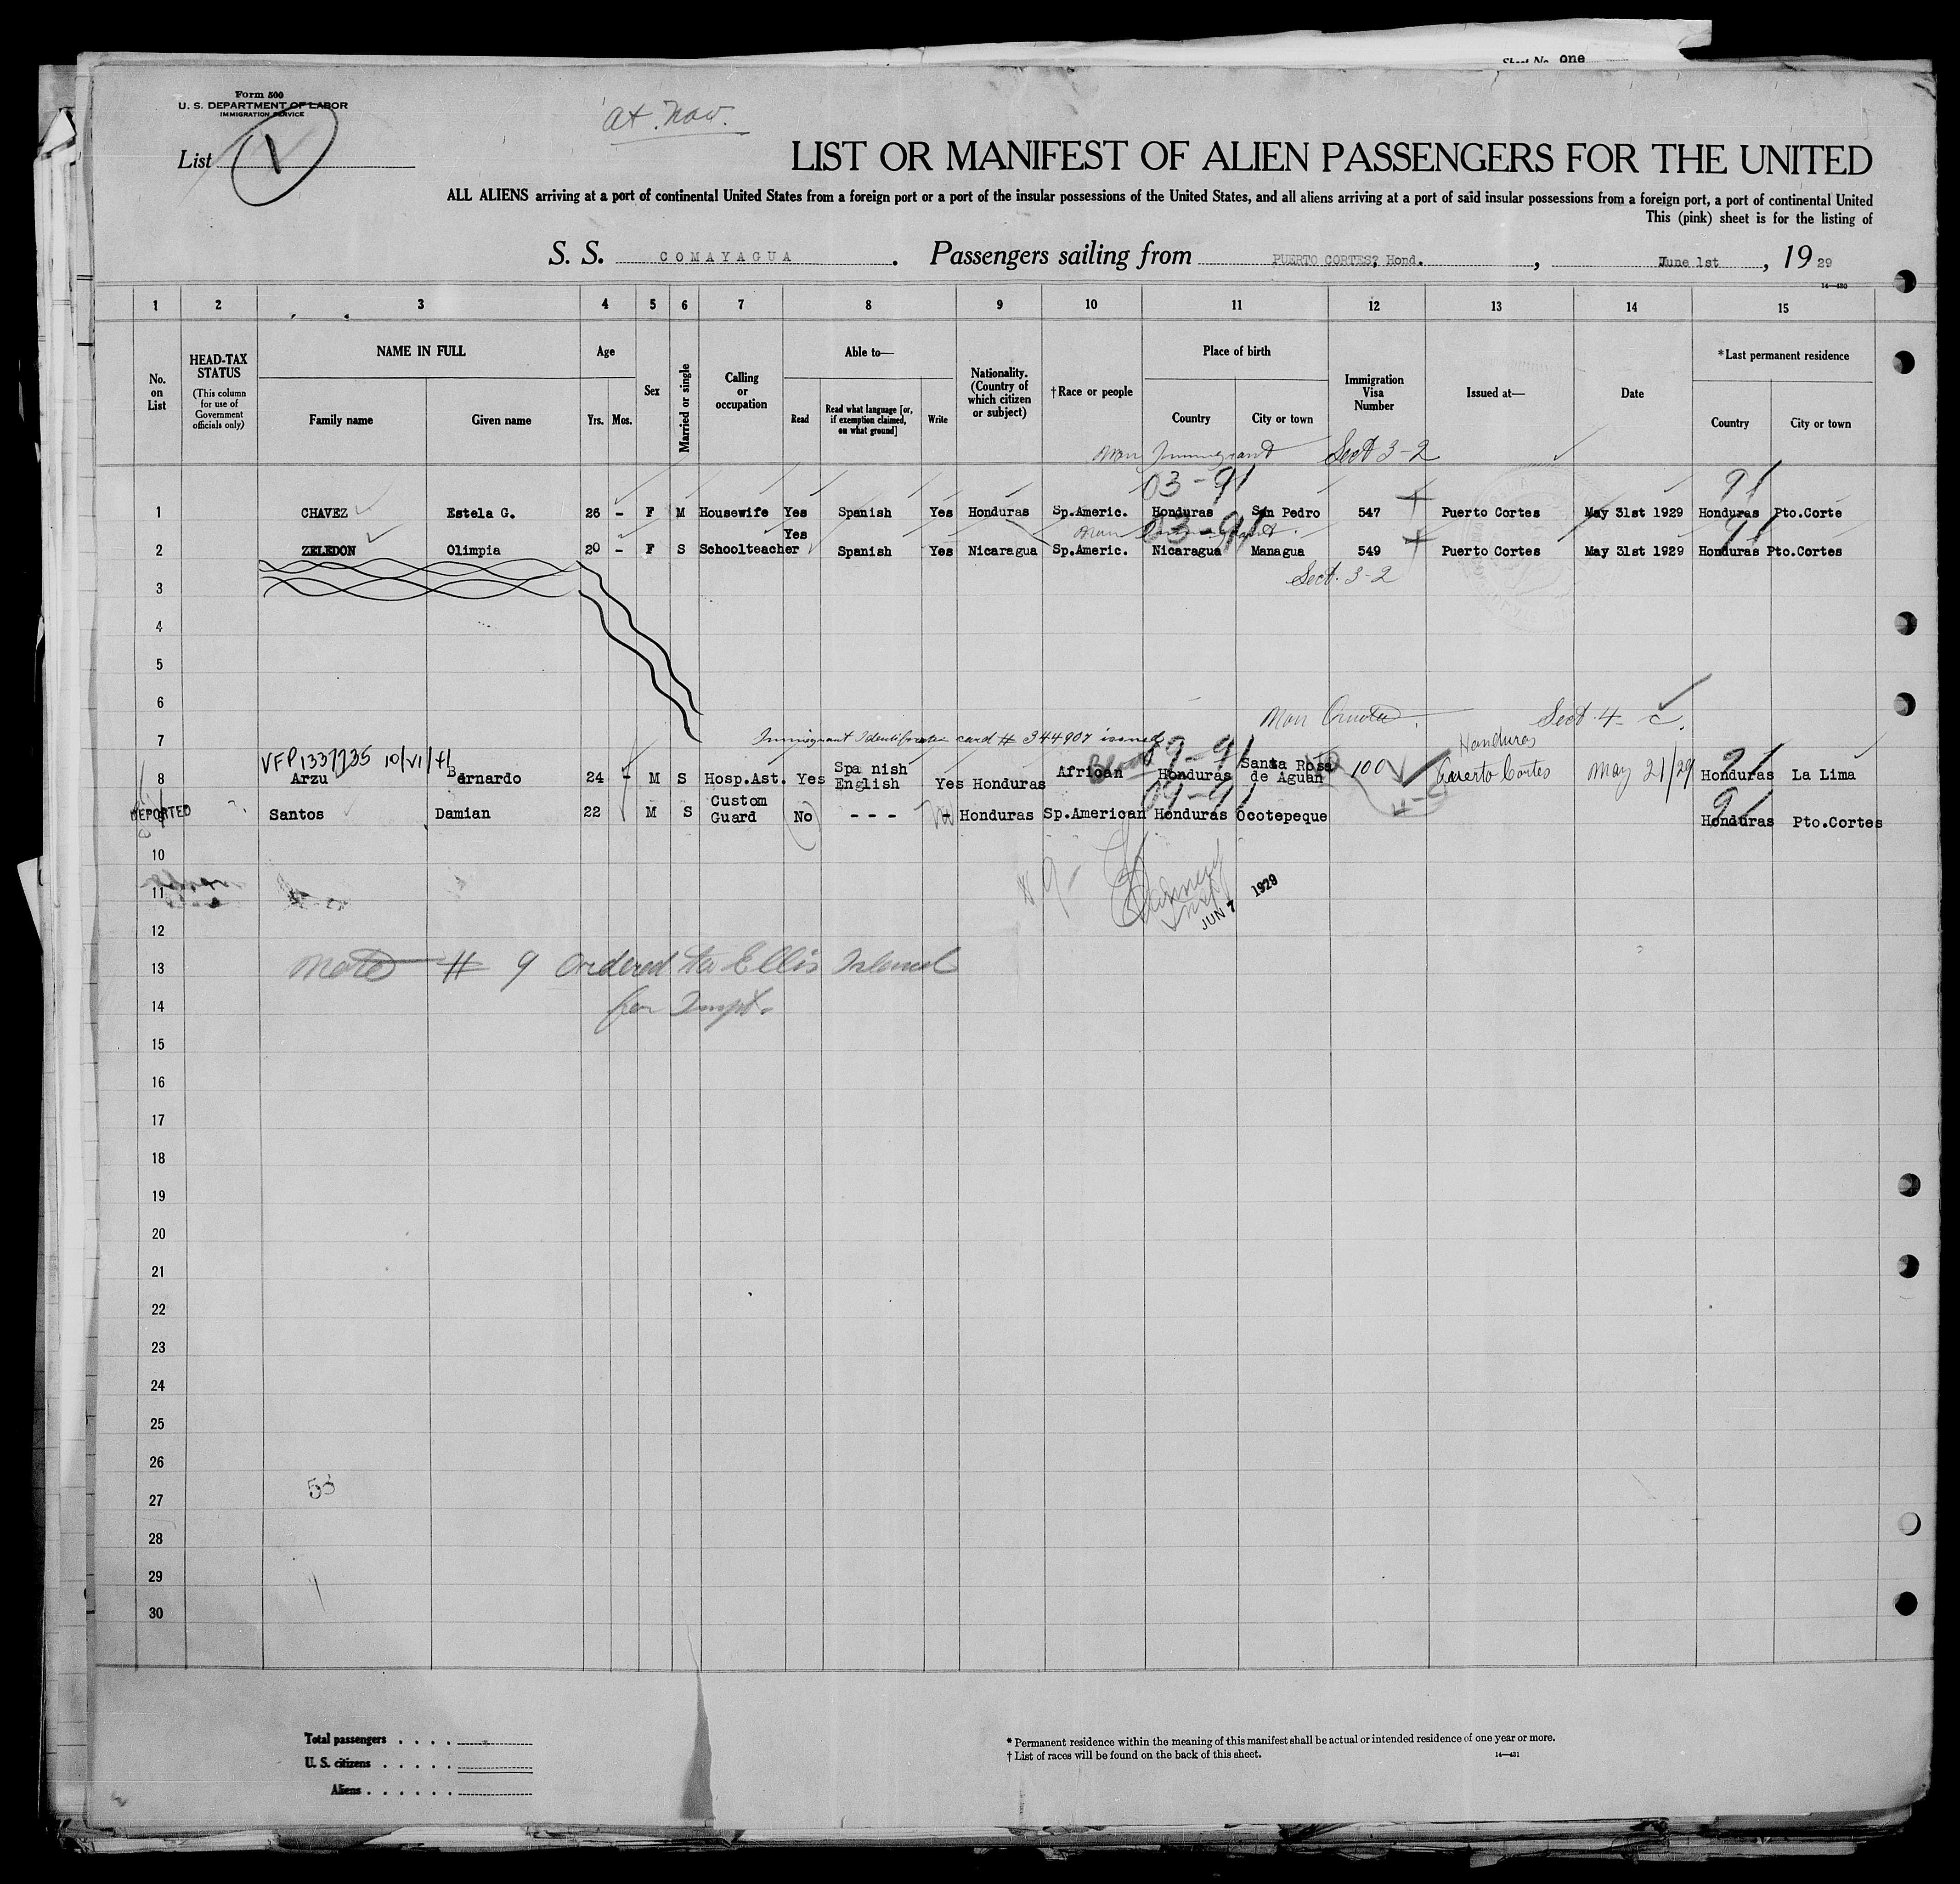 Sheet No. one
Form 500
U. S. DEPARTMENT OF LABOR
IMMIGRATION SERVICE
List 1
LIST OR MANIFEST OF ALIEN PASSENGERS FOR THE UNITED
ALL ALIENS arriving at a port of continental United States from a foreign port or a port of the insular possessions of the United States, and all aliens arriving at a port of said insular possessions from a foreign port, a port of continental United
This (pink) sheet is for the listing of
S. S. COMAYAGUA. Passengers sailing from PUERTO CORTES, Hond., June 1st, 1929
14—430
1 2 3 4 5 6 7 8 9 10 11 12 13 14 15
No. on List
HEAD-TAX STATUS
(This column for use of Government officials only)
NAME IN FULL
Family name Given name
Age
Yrs. Mos.
Sex
Married or single
Calling or occupation
Able to—
Read
Read what language [or, if exemption claimed, on what ground]
Write
Nationality. (Country of which citizen or subject)
†Race or people
Place of birth
Country City or town
Immigration Visa Number
Issued at—
Date
*Last permanent residence
Country City or town
Non Immigrant Sect 3-2
03-91 91
1 CHAVEZ Estela G. 26 - F M Housewife Yes Spanish Yes Honduras Sp.Americ. Honduras San Pedro 547 Puerto Cortes May 31st 1929 Honduras Pto.Corte
03-91 91
2 ZELEDON Olimpia 20 - F S Schoolteacher Yes Spanish Yes Nicaragua Sp.Americ. Nicaragua Managua 549 Puerto Cortes May 31st 1929 Honduras Pto.Cortes
Sect. 3-2
3
4
5
6
Non Quota Sect. 4 - c.
7
Immigrant Identification card # 344907 issued
Honduras
VFP1337235 10/VI/41
8 Arzu Bernardo 24 - M S Hosp.Ast. Yes Spa nish English Yes Honduras African Black Honduras Santa Rosa de Aguan 100 Puerto Cortes May 21/29 Honduras La Lima
09-91 91
DEPORTED Santos Damian 22 M S Custom Guard No - - - No - Honduras Sp.American Honduras Ocotepeque Honduras Pto.Cortes
10
11
JUN 7 1929
12
13
Note # 9 Ordered to Ellis Island
14
for Inspt.
15
16
17
18
19
20
21
22
23
24
25
26
53
27
28
29
30
Total passengers . . . .
U. S. citizens . . . . .
Aliens . . . . . .
* Permanent residence within the meaning of this manifest shall be actual or intended residence of one year or more.
† List of races will be found on the back of this sheet.
14—431